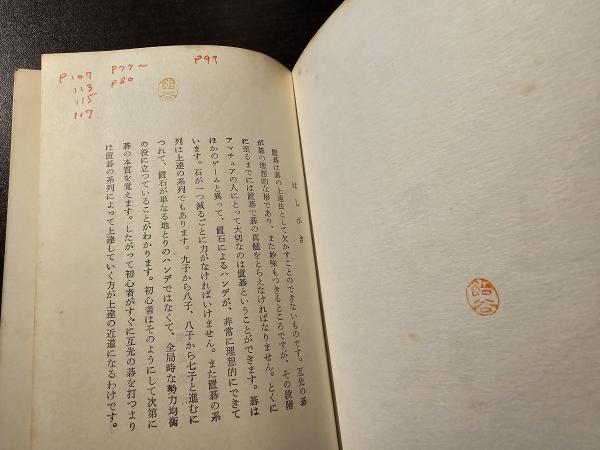 P107
113
115
117
P77〜
P80
P97
はしがき
置碁は碁の上達法として欠かすことのできないものです。互先の碁
が碁の理想的な形であり、また妙味もつきるところですが、その段階
に至るまでには置碁で碁の真髄をとらえなければなりません。とくに
アマチュアの人にとって大切なのは置碁ということができます。碁は
ほかのゲームと異って、置石によるハンデが、非常に理想的にできて
います。石が一つ減るごとに力がなければいけません。また置碁の系
列は上達の系列でもあります。九子から八子、八子から七子と進むに
つれて、置石が単なる地とりのハンデではなくて、全局時な勢力均衡
の役に立っていることがわかります。初心者はそのようにして次第に
碁の本質を覚えます。したがって初心者がすぐに互先の碁を打つまり
は置碁の系列によって上達していく方が上達の近道になるわけです。